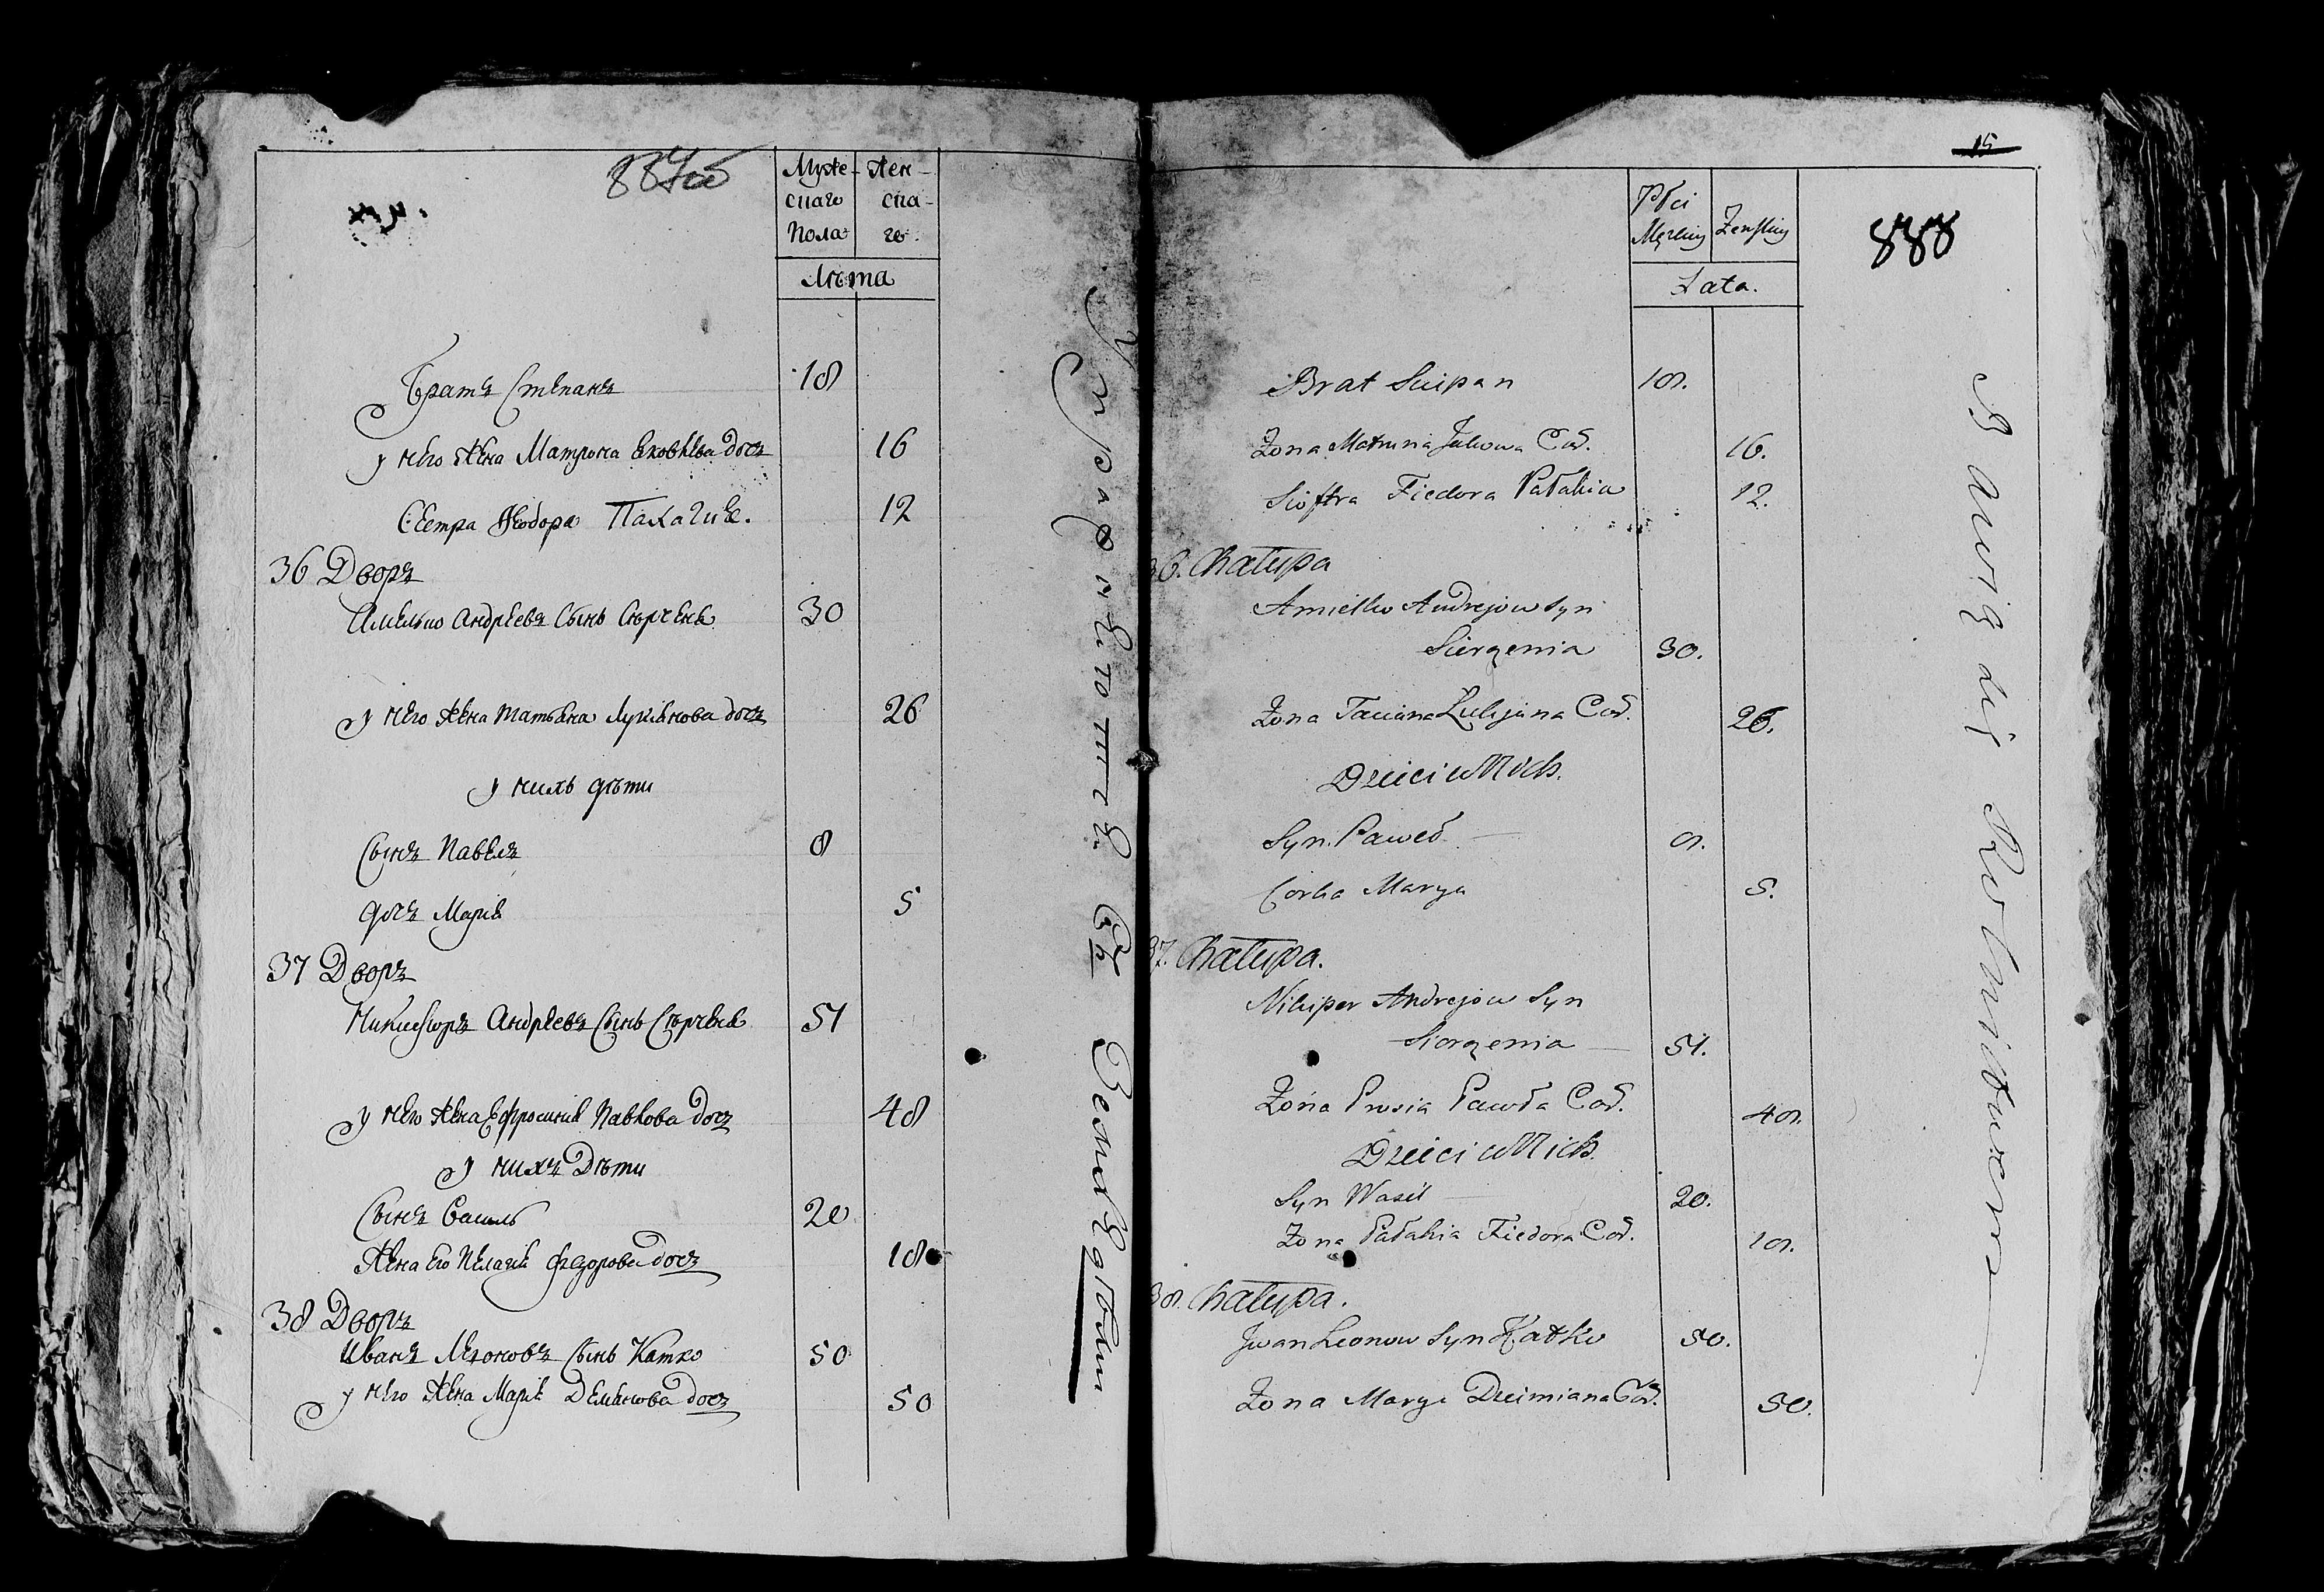 887об
Мужс- Жен-
скаго ска-
пола го.
Лѣта
Братъ Степанъ 18
у него жена Матрона Яковлева дочь 16
Сестра Феодора Палагия. 12
36 Дворъ
Амелько Андреевъ сынъ Сѣрченя 30
у него жена татьяна Лукянова дочь 26
у нихъ дѣти
Сынъ Павелъ 8
дочь Мария 5
37 Дворъ
Никифоръ Андреевъ Сынъ Сѣрченя 51
у него жена Ефросиния Павлова дочь 48
у нихъ Дѣти
Сынъ Василь 20
Жена его Пелагия Федорова дочь 18
38 Дворъ
Иванъ Леоновъ сынъ Катко 50
у него жена Мария Демянова дочь 50
15
888
Płci
Męzkiey Zenskiey
Lata.
Brat Sciepan 18.
Zona Matruna Jakowa Cod. 16.
Siostra Fiedora Pałahia 12.
36. Chałupa
Amielko Andrejow Syn
Sierzenia 30.
Zona Taciana Łukjana Cod. 26.
Dzieci u Nich.
Syn Paweł 8.
Corka Marya 5.
37. Chałupa.
Nikiper Andrejow Syn
Sierzenia 51.
Zona Prosia Pawła Cod. 48.
Dzieci u Nich.
Syn Wasil 20.
Zona Pałahia Fiedora Cod. 18.
38. Chałupa.
Jwan Leonow Syn Katko 50.
Zona Marya Dziemiana Cod. 50.